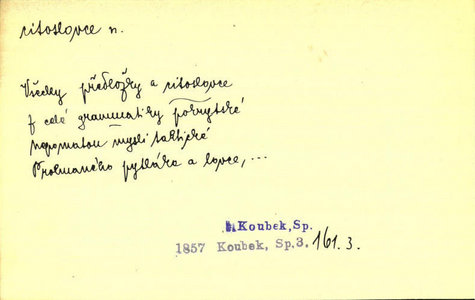 citoslovce n.
Všecky předložky a citoslovce
z celé grammatiky pokrytské
nepomatou mysli taktické
Prohnaného pytláka a lovce, ...
Koubek, Sp.
1857 Koubek, Sp.3. 161. 3.